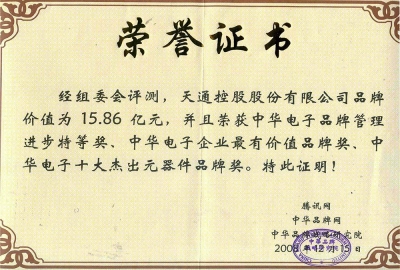 荣誉证书
经组委会评测，天通控股股份有限公司品牌
价值为 15.86 亿元，并且荣获中华电子品牌管理
进步特等奖、中华电子企业最有价值品牌奖、中
华电子十大杰出元器件品牌奖。特此证明！
腾讯网
中华品牌网
中华品牌战略研究院
2008年12月15日